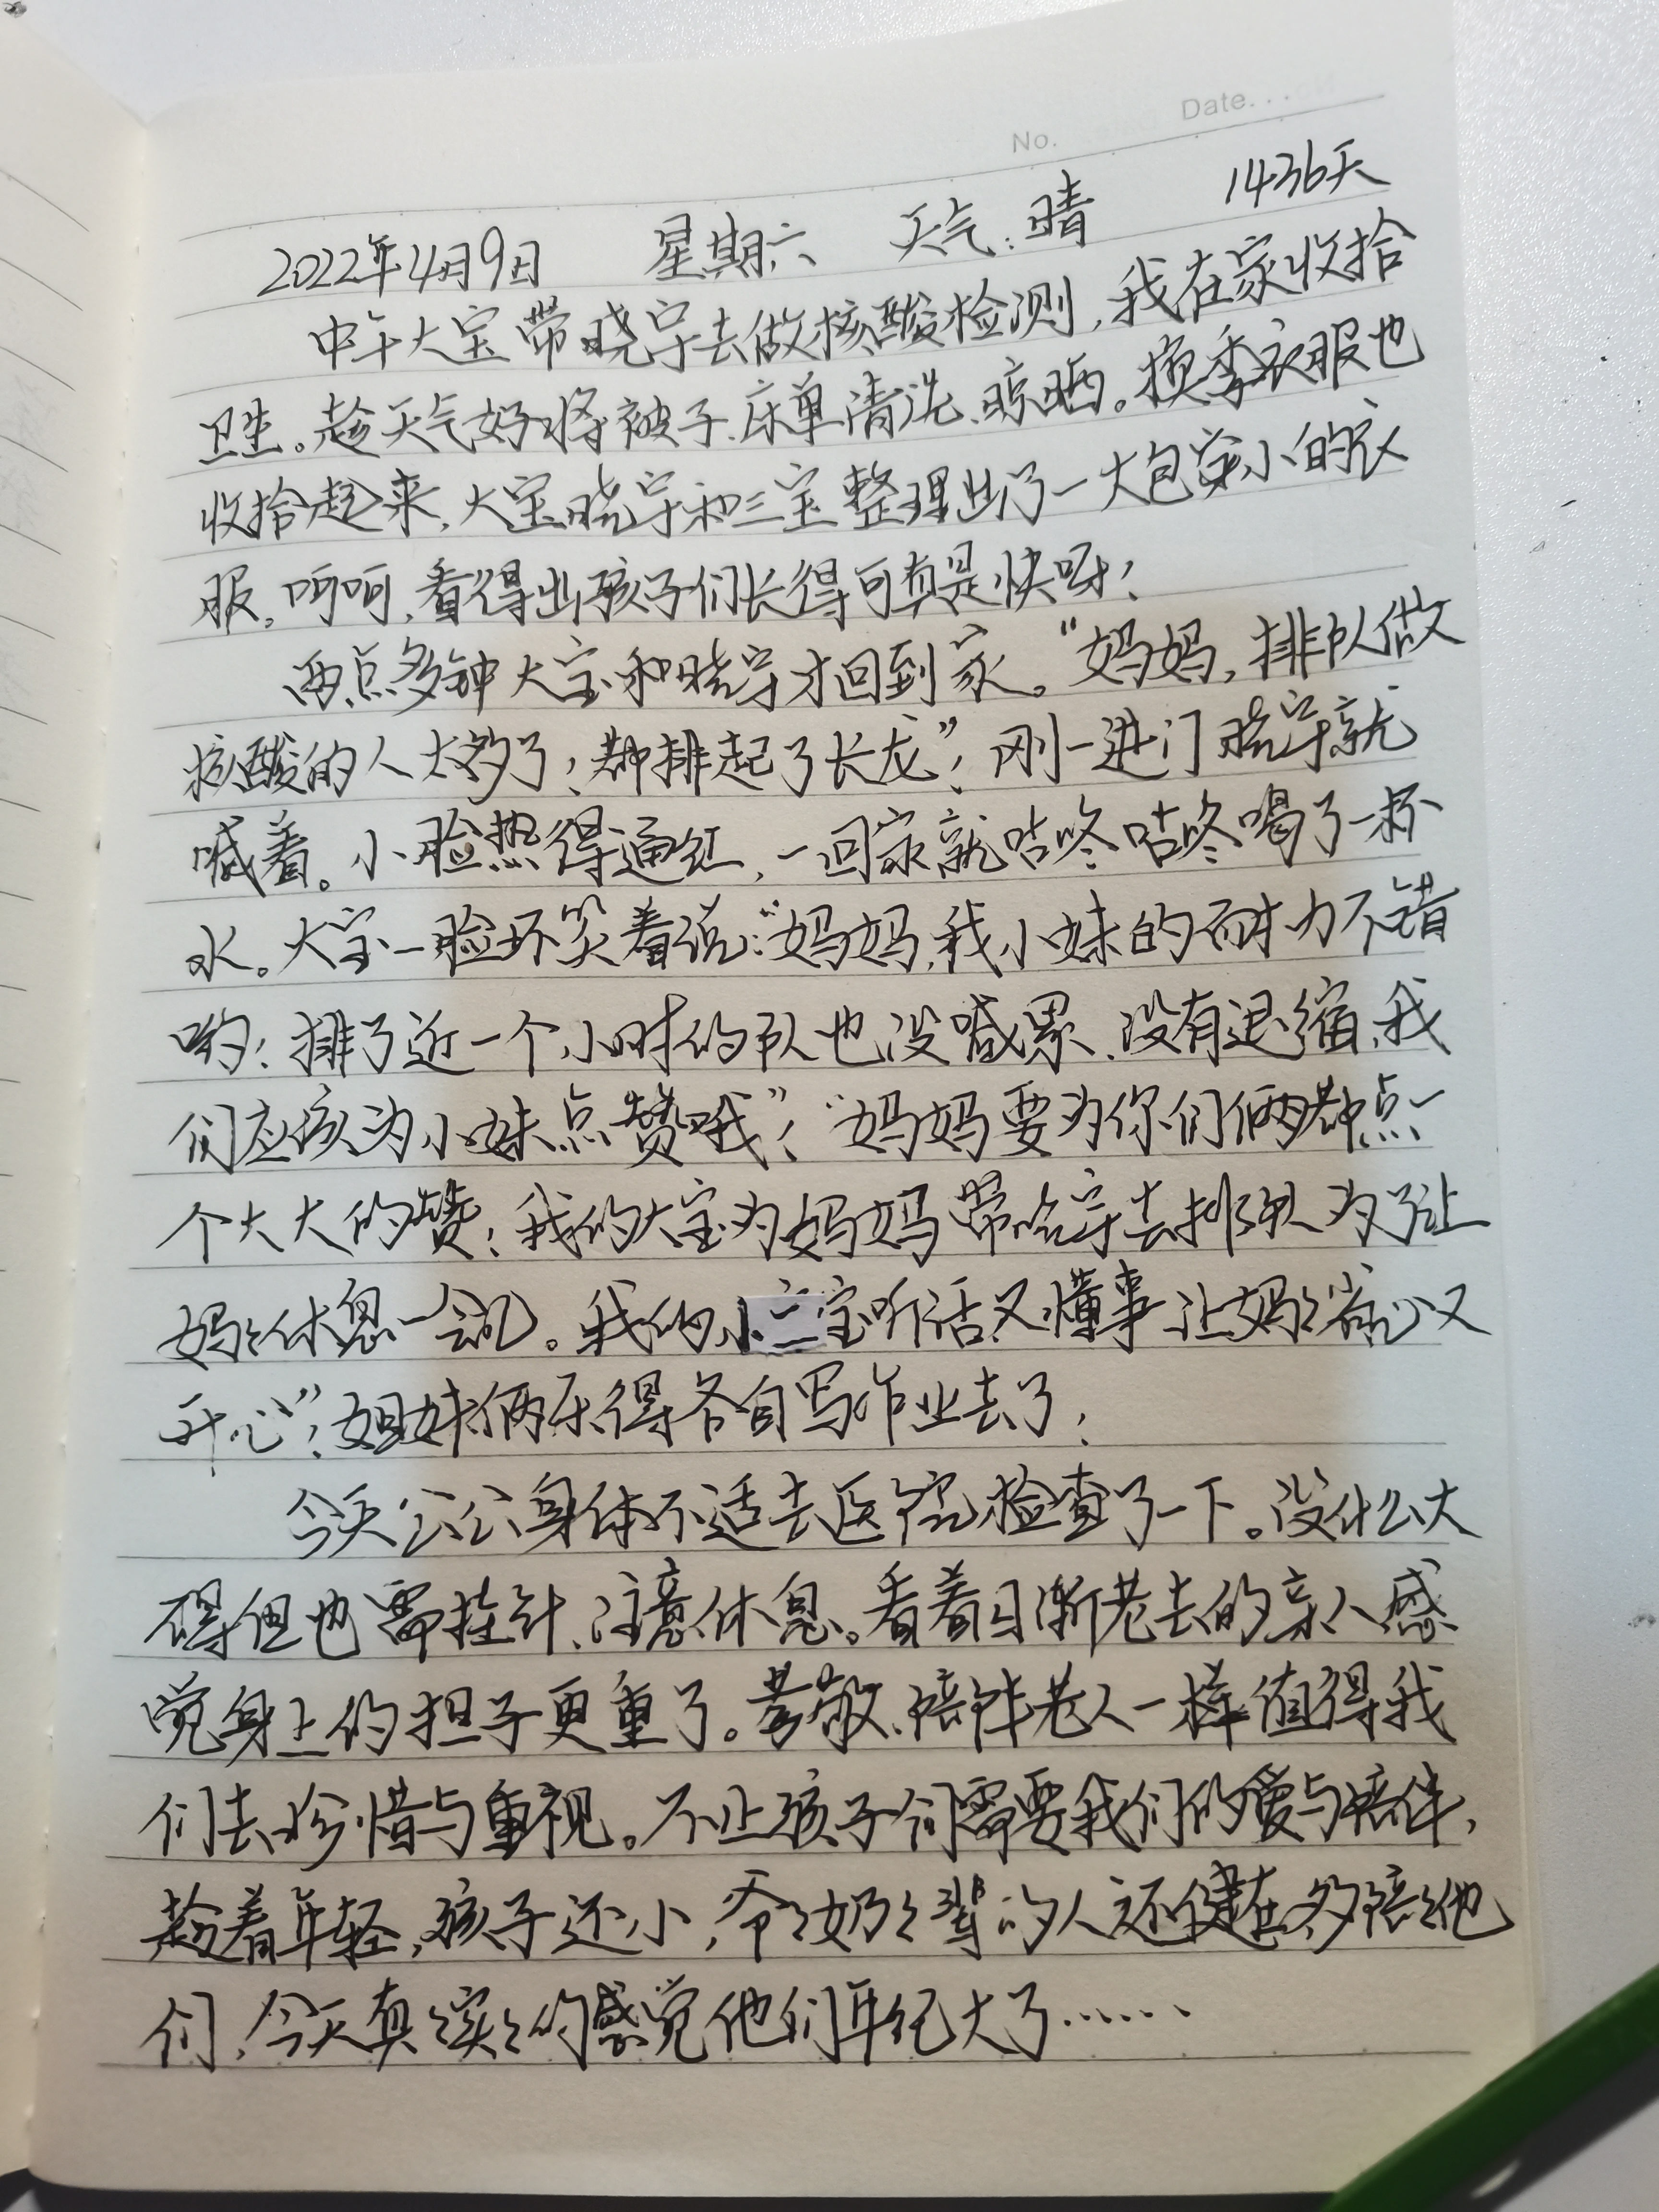 No.
Date...
2022年4月9日 星期六 天气:晴 1436天
中午大宝带晓宇去做核酸检测,我在家收拾
卫生。趁天气好将被子、床单清洗、晾晒。换季衣服也
收拾起来,大宝晓宇和三宝整理出了一大包穿小的衣
服。呵呵,看得出孩子们长得可真是快呀!
两点多钟大宝和晓宇才回到家。“妈妈,排队做
核酸的人太多了!都排起了长龙”!刚一进门晓宇就
喊着。小脸热得通红,一回家就咕咚咕咚喝了一杯
水。大宝一脸坏笑着说:“妈妈,我小妹的耐力不错
哟!排了近一个小时的队也没喊累、没有退缩,我
们应该为小妹点赞哦”!“妈妈要为你们俩都点一
个大大的赞!我的大宝为妈妈带晓宇去排队为了让
妈妈休息一会儿。我的小二宝听话又懂事让妈妈省心又
开心”!姐妹俩乐得各自写作业去了!
今天公公身体不适去医院检查了一下。没什么大
碍但也需挂针、注意休息。看着日渐老去的亲人感
觉身上的担子更重了。孝敬、陪伴老人一样值得我
们去珍惜与重视。不止孩子们需要我们的爱与陪伴,
趁着年轻,孩子还小,爷爷奶奶辈的人还健在,多陪陪他
们,今天真真实实的感觉他们年纪大了……